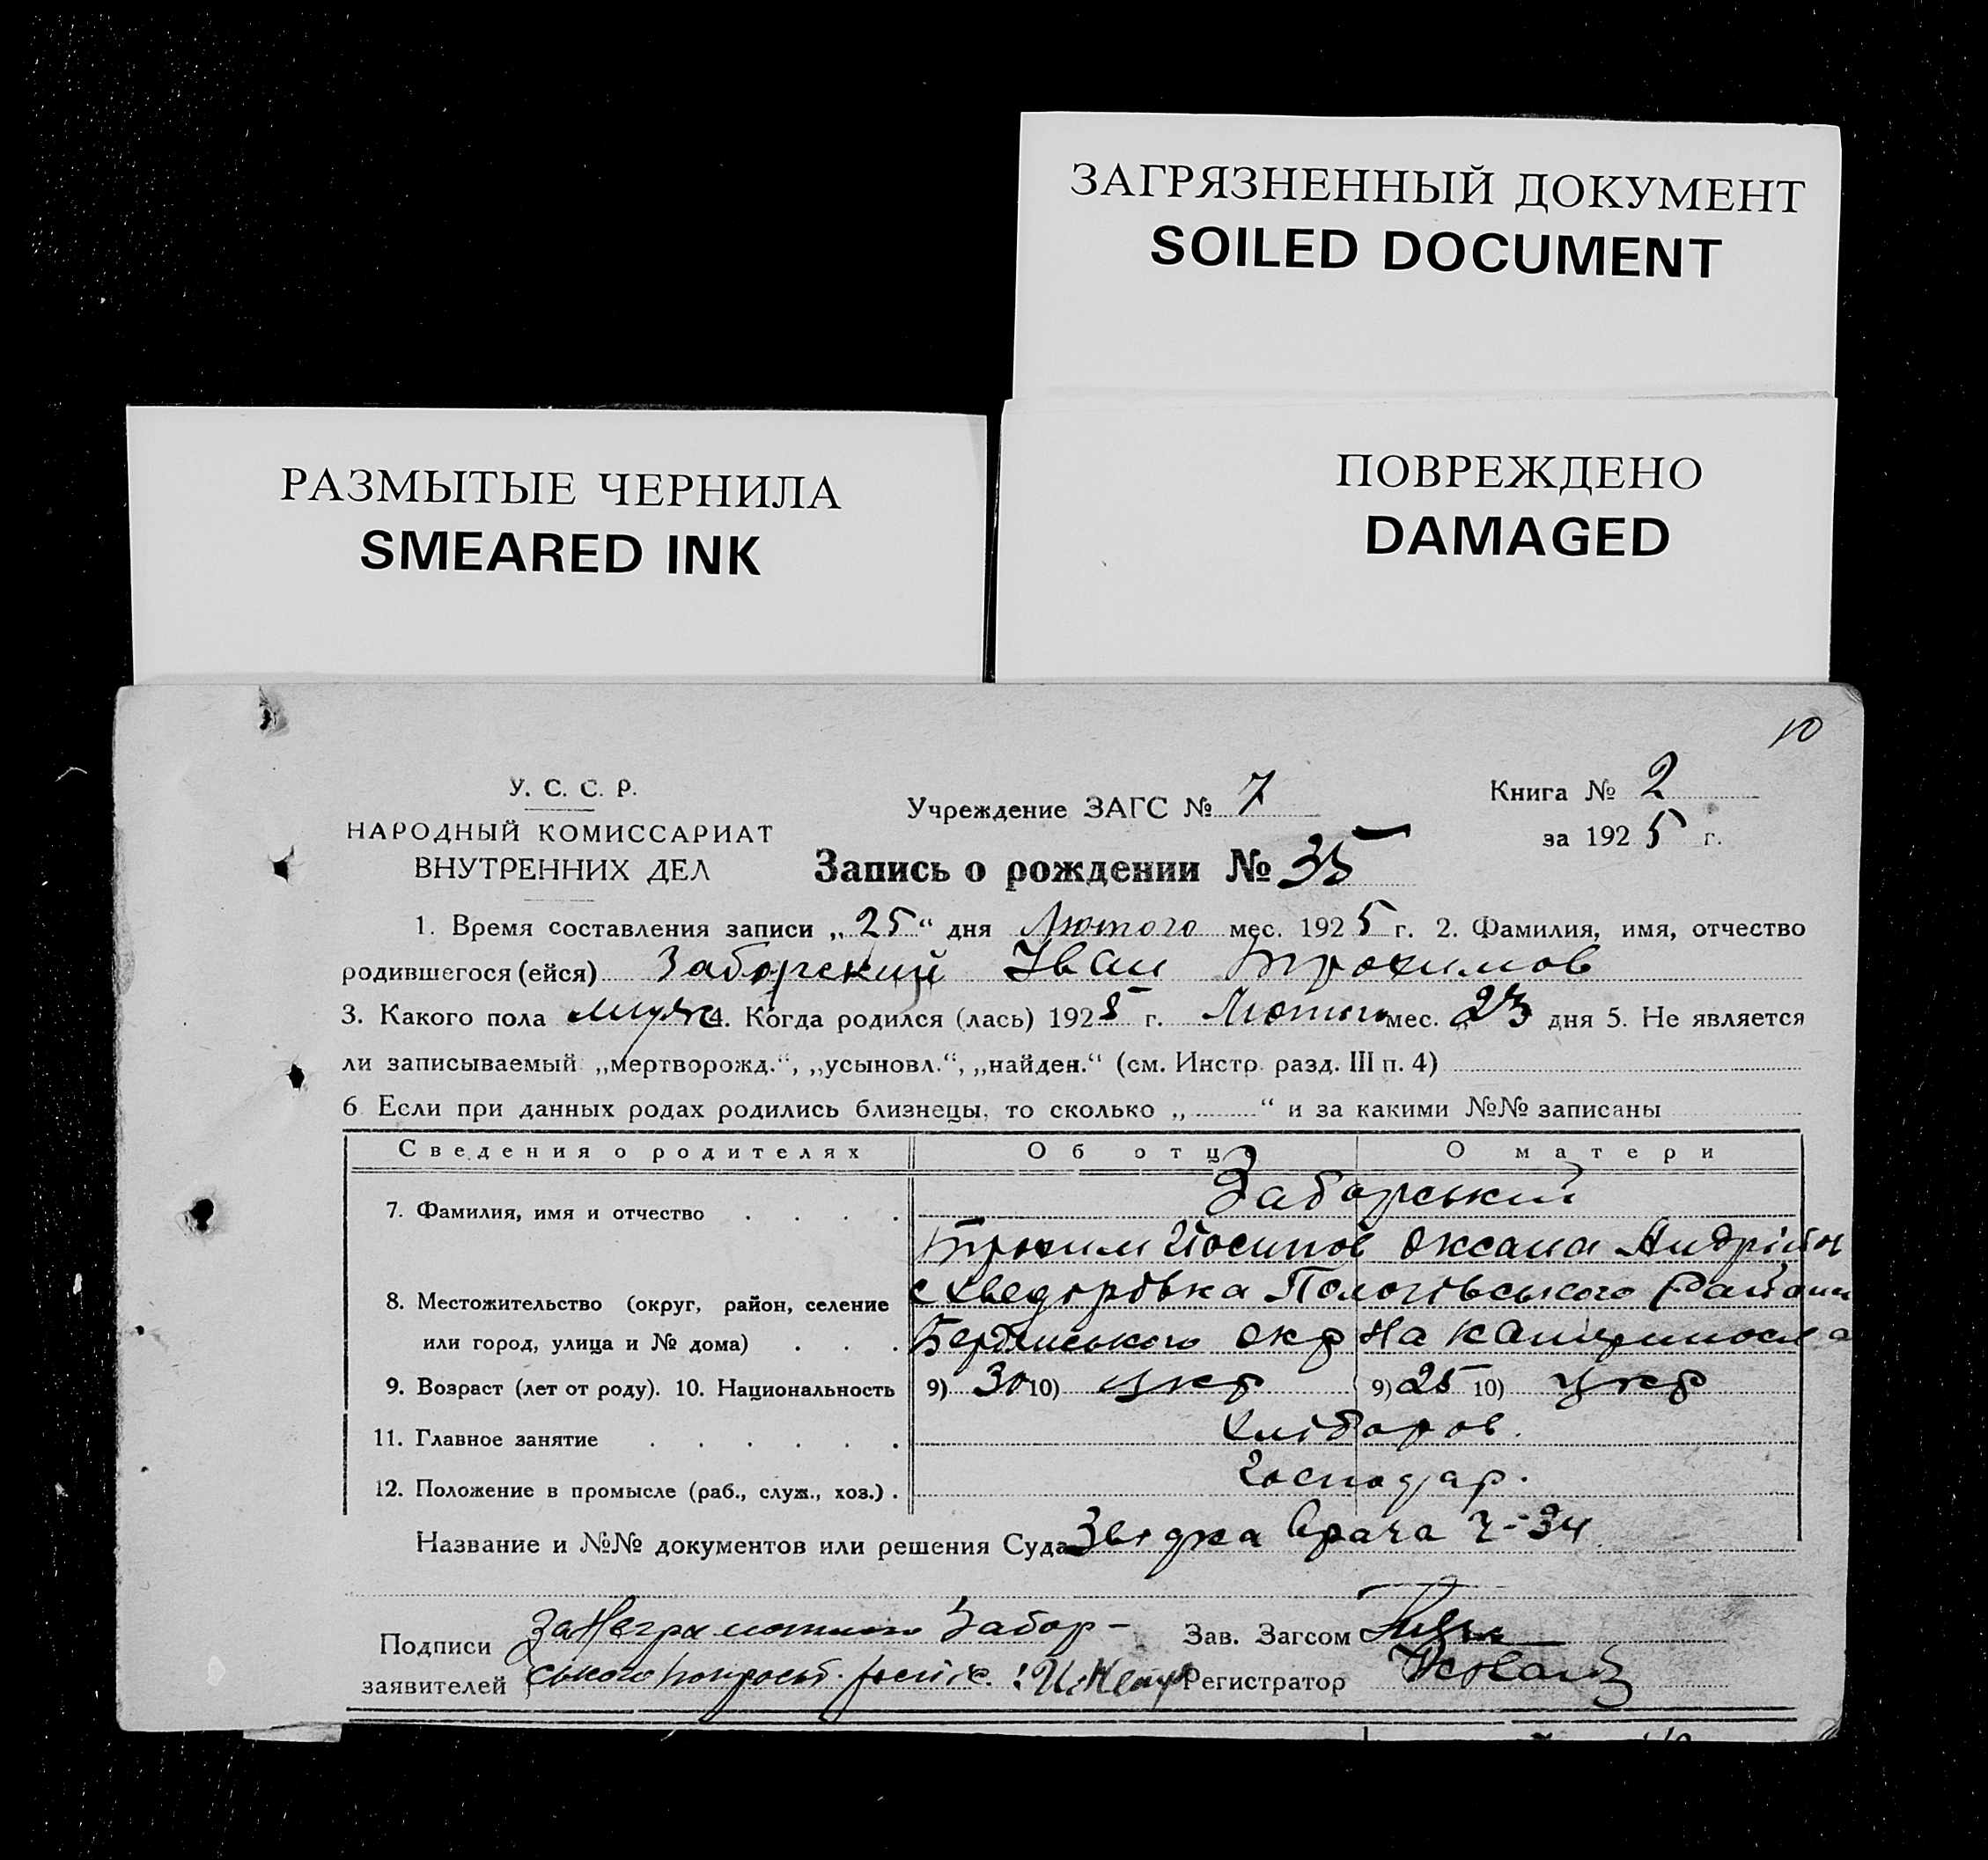 ЗАГРЯЗНЕННЫЙ ДОКУМЕНТ
SOILED DOCUMENT
РАЗМЫТЫЕ ЧЕРНИЛА
SMEARED INK
ПОВРЕЖДЕНО
DAMAGED
10
У. С. С. Р.
НАРОДНЫЙ КОМИССАРИАТ
ВНУТРЕННИХ ДЕЛ
Учреждение ЗАГС № 7
Книга № 2
за 1925 г.
Запись о рождении № 35
1. Время составления записи „25“ дня Лютого мес. 1925 г. 2. Фамилия, имя, отчество
родившегося (ейся) Заборский Іван Трохимов
3. Какого пола муж 4. Когда родился (лась) 1925 г. Лютого мес. „23 дня 5. Не является
ли записываемый „мертворожд.“, „усыновл.“, „найден.“ (см. Инстр. разд. III п. 4)
6 Если при данных родах родились близнецы, то сколько „ “ и за какими №№ записаны
Сведения о родителях Об отце О матери
7. Фамилия, имя и отчество Заборський
Трохим Йосипов Оксана Андрійов
8. Местожительство (округ, район, селение с Хведорівка Пологівського Района
или город, улица и № дома) Бердянського окр на Катеринослав
9. Возраст (лет от роду). 10. Национальность 9) 30 10) укр 9) 25 10) укр
11. Главное занятие Хлібороб.
12. Положение в промысле (раб., служ., хоз.) Господар.
Название и №№ документов или решения Суда Звідка врача ч-34
Подписи За Неграмотного Забор-
заявителей ського
Зав. Загсом
Регистратор